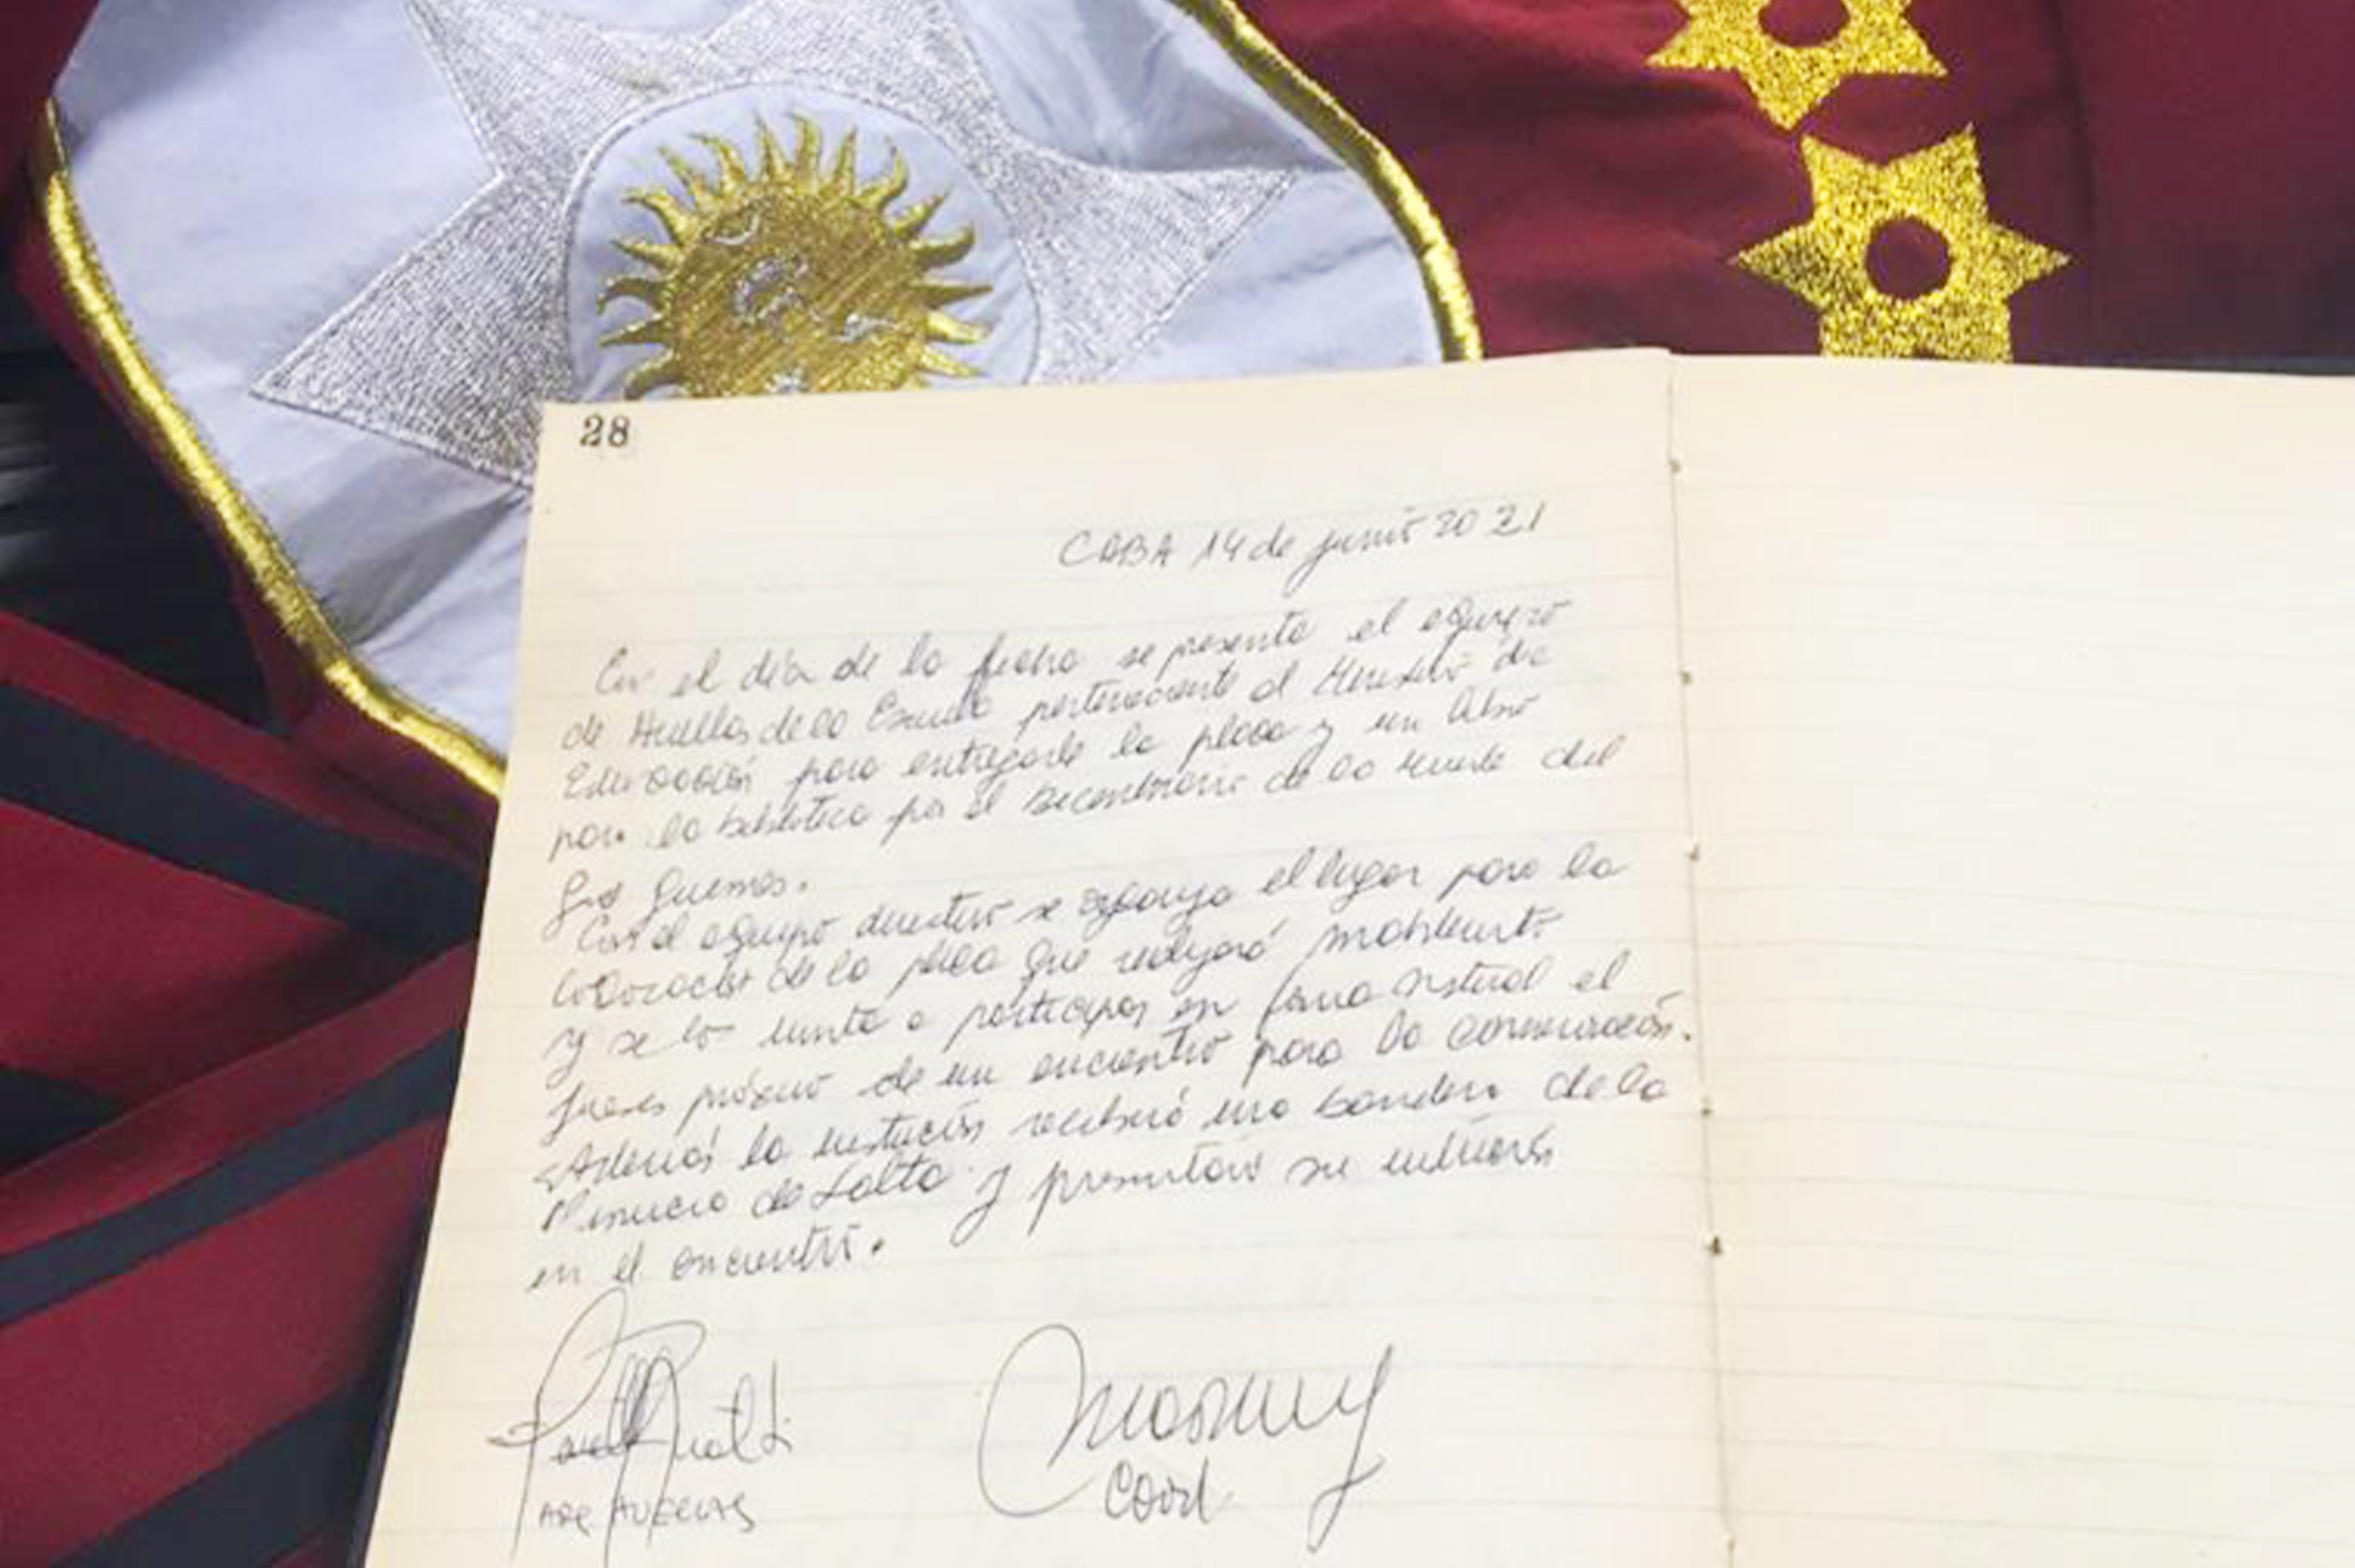 28
CABA 14 de junio 2021
En el día de la fecha se presenta el equipo
de Huellas de la Escuela perteneciente al Ministerio de
Educación para entregarle la placa y un libro
para la biblioteca por el bicentenario de la muerte del
Gral Guemes.
Con el equipo directivo se el lugar para la
colocación de la placa que realizará
y se lo invita a participar en forma virtual el
jueves próximo de un encuentro para la conmemoración.
Además la institución recibirá una bandera de la
Provincia de Salta y presentará su
en el encuentro.
ARQ HUELLAS
Coord